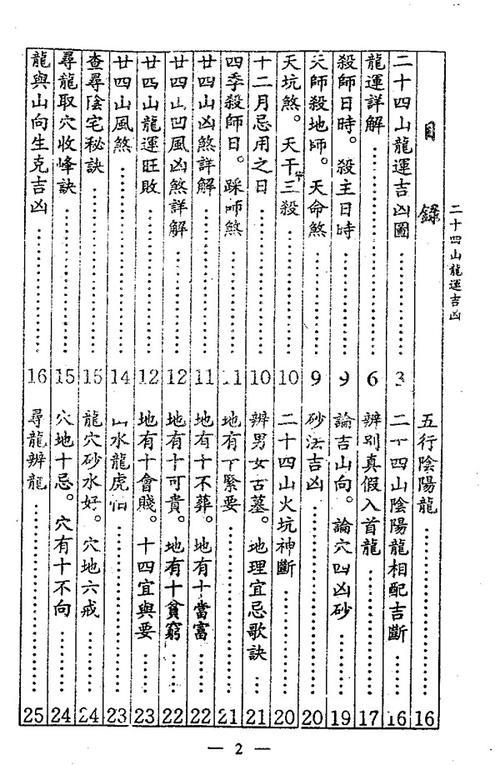 二十四山龍運吉凶
目錄
二十四山龍運吉凶圖 3
龍運詳解 6
殺師日時。殺主日時 9
天師殺地師。天命煞 9
天坑煞。天干三殺 10
十二月忌用之日 10
四季殺師日。踩師煞 11
廿四山凶煞詳解 11
廿四山凹風凶煞詳解 12
廿四山龍運旺敗 12
廿四山風煞 14
查尋陰宅秘訣 15
尋龍取穴收峰訣 15
龍與山向生克吉凶 16
五行陰陽龍 16
二十四山陰陽龍相配吉斷 16
辨別真假入首龍 17
論吉山向。論穴凶砂 19
砂法吉凶 20
二十四山火坑神斷 20
辨男女古墓。地理宜忌歌訣 21
地有十緊要 21
地有十不葬。地有十當富 22
地有十可貴。地有十貧窮 22
地有十會賤。十四宜與要 23
山水龍虎怕 23
龍穴砂水好。穴地六戒 24
穴地十忌。穴有十不向 24
尋龍辨龍 25
— 2 —